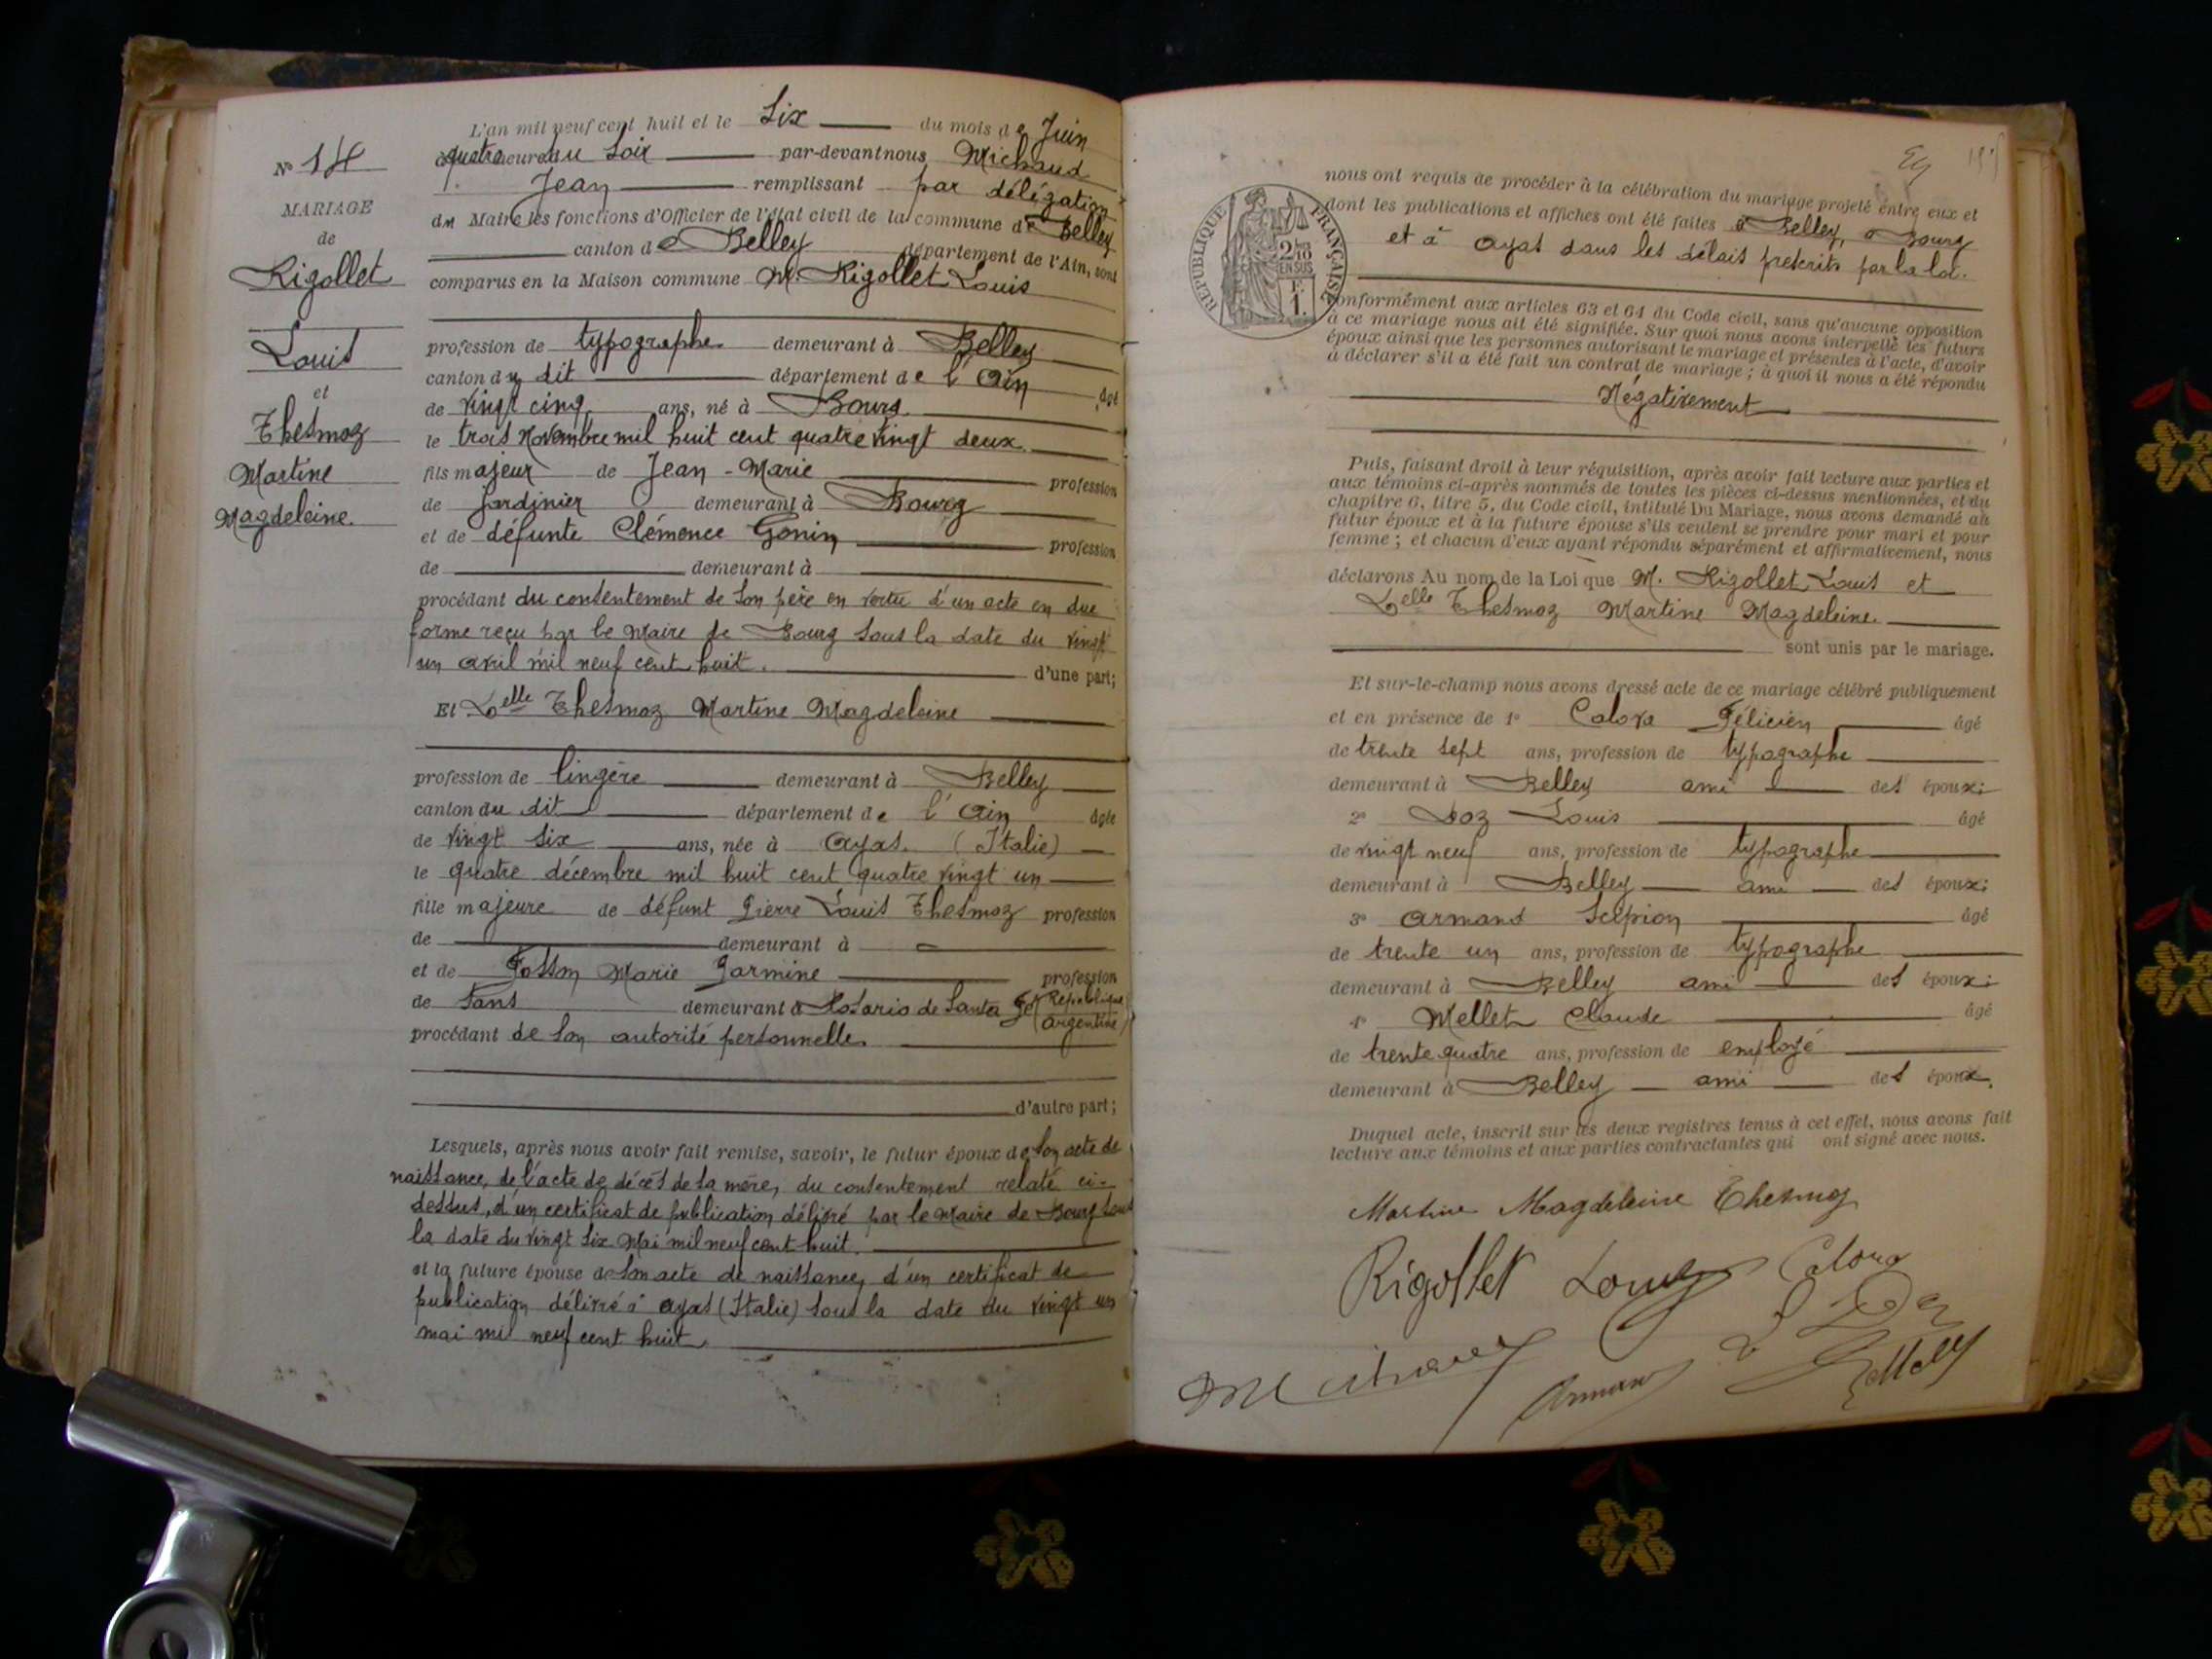 N° 14
MARIAGE
de
Rigollet
Louis
et
Thesmoz
Martine
Magdeleine.
L'an mil neuf cent huit et le Six du mois de Juin
à quatre heures du Soir par-devant nous Michaud
Jean remplissant par délégation
du Maire les fonctions d'Officier de l'état civil de la commune de Belley
canton de Belley département de l'Ain, sont
comparus en la Maison commune M. Rigollet Louis
profession de typographe demeurant à Belley
canton du dit département de l'Ain âgé
de vingt cinq ans, né à Bourg
le trois Novembre mil huit cent quatre vingt deux
fils majeur de Jean-Marie profession
de jardinier demeurant à Bourg
et de défunte Clémence Gonin profession
de demeurant à
procédant du consentement de son père en vertu d'un acte en due
forme reçu par le Maire de Bourg sous la date du vingt
un avril mil neuf cent huit. d'une part;
Et Delle Thesmoz Martine Magdeleine
profession de lingère demeurant à Belley
canton du dit département de l'Ain âgée
de vingt six ans, née à Ayas. (Italie)
le quatre décembre mil huit cent quatre vingt un
fille majeure de défunt Pierre Louis Thesmoz profession
de demeurant à
et de Fosson Marie Jarmine profession
de sans demeurant à Rosario de Santa Fé (République
argentine)
procédant de son autorité personnelle.
d'autre part;
Lesquels, après nous avoir fait remise, savoir, le futur époux de son acte de
naissance, de l'acte de décès de sa mère, du consentement relaté ci-
dessus, d'un certificat de publication délivré par le Maire de Bourg sous
la date du vingt six Mai mil neuf cent huit.
et la future épouse de son acte de naissance, d'un certificat de
publication délivré à Ayas (Italie) sous la date du vingt un
mai mil neuf cent huit.
RÉPUBLIQUE FRANÇAISE
2/10
EN SUS
F.
1.
nous ont requis de procéder à la célébration du mariage projeté entre eux et
dont les publications et affiches ont été faites à Belley, à Bourg
et à Ayas dans les délais prescrits par la loi.
conformément aux articles 63 et 64 du Code civil, sans qu'aucune opposition
à ce mariage nous ait été signifiée. Sur quoi nous avons interpellé les futurs
époux ainsi que les personnes autorisant le mariage et présentes à l'acte, d'avoir
à déclarer s'il a été fait un contrat de mariage; à quoi il nous a été répondu
Négativement
Puis, faisant droit à leur réquisition, après avoir fait lecture aux parties et
aux témoins ci-après nommés de toutes les pièces ci-dessus mentionnées, et du
chapitre 6, titre 5, du Code civil, intitulé Du Mariage, nous avons demandé au
futur époux et à la future épouse s'ils veulent se prendre pour mari et pour
femme; et chacun d'eux ayant répondu séparément et affirmativement, nous
déclarons Au nom de la Loi que M. Rigollet Louis et
Delle Thesmoz Martine Magdeleine.
sont unis par le mariage.
Et sur-le-champ nous avons dressé acte de ce mariage célébré publiquement
et en présence de 1° Calova Félicien âgé
de trente sept ans, profession de typographe
demeurant à Belley ami des époux;
2° Doz Louis âgé
de vingt neuf ans, profession de typographe
demeurant à Belley ami des époux;
3° Armand Scipion âgé
de trente un ans, profession de typographe
demeurant à Belley ami des époux;
4° Mellet Claude âgé
de trente quatre ans, profession de employé
demeurant à Belley ami des époux.
Duquel acte, inscrit sur les deux registres tenus à cet effet, nous avons fait
lecture aux témoins et aux parties contractantes qui ont signé avec nous.
Martine Magdeleine Thesmoz
Rigollet Louis Calova
L Doz
Michaud Armand Mellet